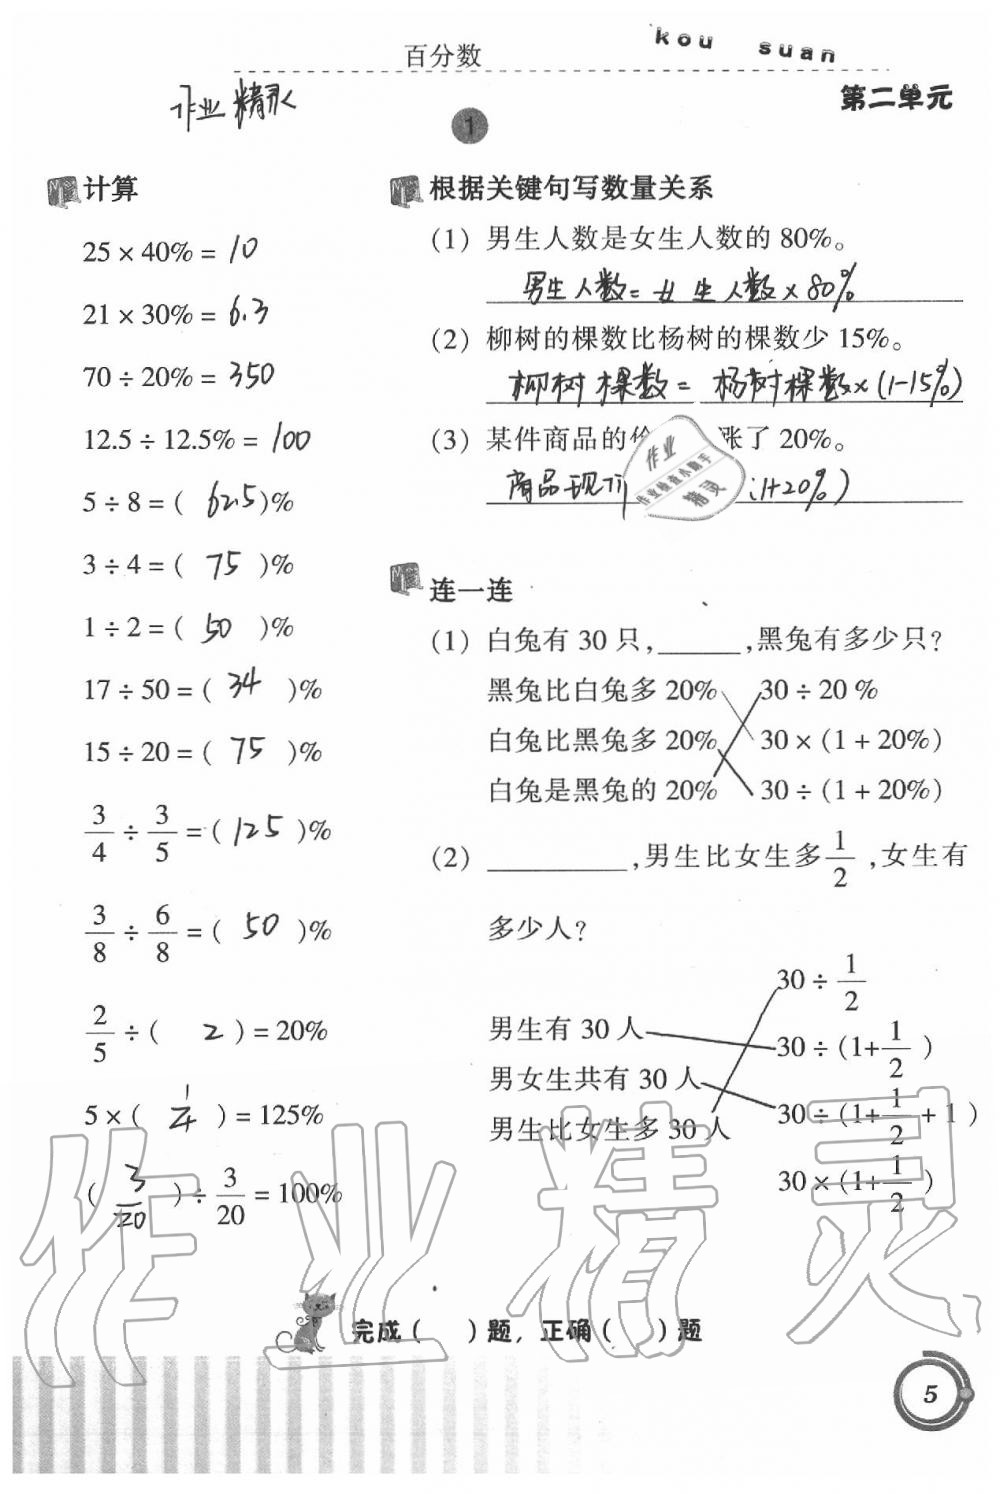 百分数
kou suan
第二单元
作业精灵
1
计算
25 × 40% = 10
21 × 30% = 6.3
70 ÷ 20% = 350
12.5 ÷ 12.5% = 100
5 ÷ 8 = ( 62.5 )%
3 ÷ 4 = ( 75 )%
1 ÷ 2 = ( 50 )%
17 ÷ 50 = ( 34 )%
15 ÷ 20 = ( 75 )%
3/4 ÷ 3/5 = ( 125 )%
3/8 ÷ 6/8 = ( 50 )%
2/5 ÷ ( 2 ) = 20%
5 × ( 1/4 ) = 125%
( 3/20 ) ÷ 3/20 = 100%
根据关键句写数量关系
(1) 男生人数是女生人数的 80%。
男生人数=女生人数×80%
(2) 柳树的棵数比杨树的棵数少 15%。
柳树棵数=杨树棵数×(1-15%)
(3) 某件商品的价 涨了 20%。
商品现 (1+20%)
作业
作业检查小助手
精灵
连一连
(1) 白兔有 30 只,______,黑兔有多少只?
黑兔比白兔多 20% 30 ÷ 20 %
白兔比黑兔多 20% 30 × (1 + 20%)
白兔是黑兔的 20% 30 ÷ (1 + 20%)
(2) __________,男生比女生多 1/2 ,女生有
多少人?
30 ÷ 1/2
男生有 30 人 30 ÷ (1+ 1/2 )
男女生共有 30 人
30 ÷ (1+ 1/2 + 1 )
男生比女生多 30 人
30 × (1+ 1/2 )
作业精灵
完成 ( ) 题, 正确 ( ) 题
5